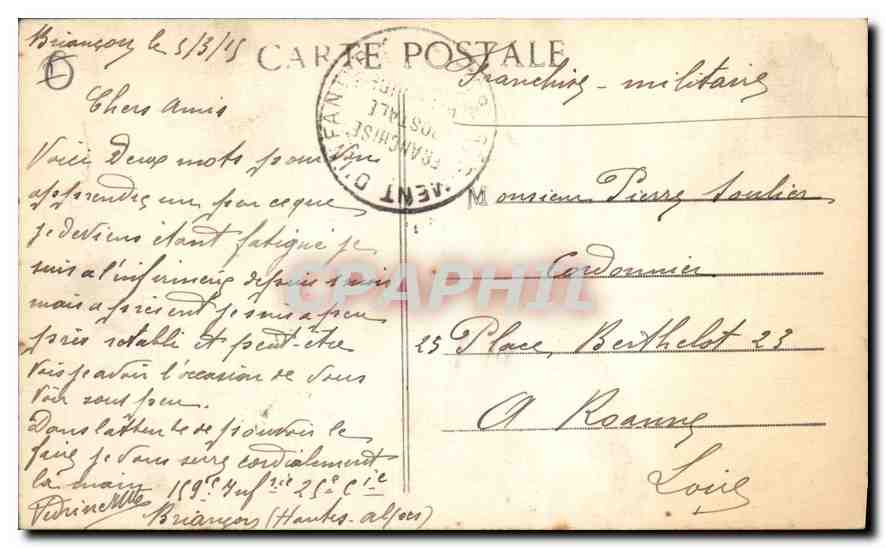 Briançon le 5/3/15
CARTE POSTALE
Franchise militaire
Chers Amis
Voici Deux mots pour vous
apprendre un peu ce que
je deviens étant fatigué je
suis a l'infirmerie depuis mois
mais a présent je suis a peu
près rétabli et peut-etre
vais je avoir l'occasion de vous
voir sous peu.
Dans l'attente de pouvoir le
faire je vous serre cordialement
la main 159e Infrie 25e Cie
Briançon (Hautes-alpes)
Monsieur Pierre Soulier
Cordonnier
23 Place, Berthelot 23
A Roanne
Loire
MENT D'INFANTERIE
FRANCHISE
POSTALE
CPAPHIL